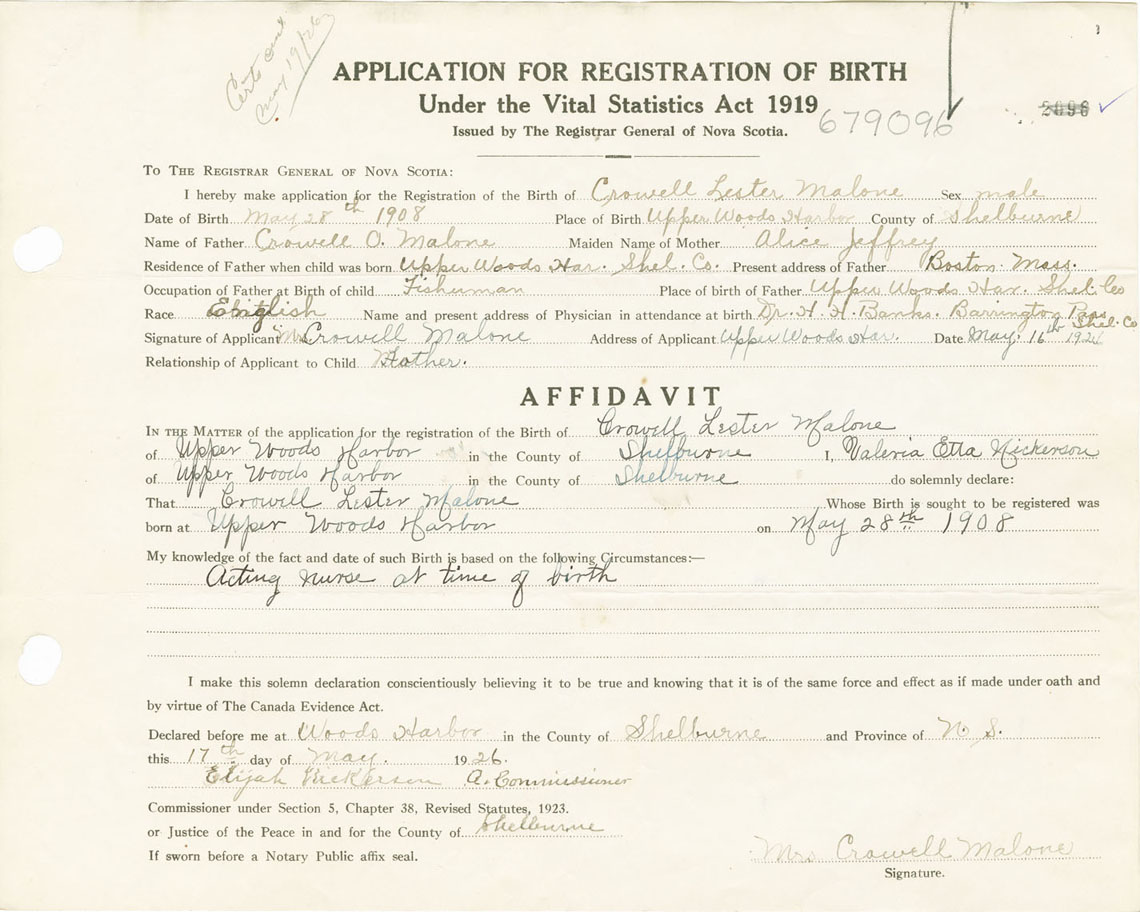 Certs sent
May 19/26
APPLICATION FOR REGISTRATION OF BIRTH
Under the Vital Statistics Act 1919
679096
2096
Issued by The Registrar General of Nova Scotia.
To The Registrar General of Nova Scotia:
I hereby make application for the Registration of the Birth of Crowell Lester Malone Sex male
Date of Birth May 28th 1908 Place of Birth Upper Woods Harbor County of Shelburne
Name of Father Crowell O. Malone Maiden Name of Mother Alice Jeffrey
Residence of Father when child was born Upper Woods Har. Shel. Co. Present address of Father Boston Mass.
Occupation of Father at Birth of child Fisherman Place of birth of Father Upper Woods Har. Shel. Co
Race English Name and present address of Physician in attendance at birth Dr. H. H. Banks. Barrington Pass Shel. Co
Signature of Applicant Mrs Crowell Malone Address of Applicant Upper Woods Har. Date May 16th 1926
Relationship of Applicant to Child
AFFIDAVIT
In the Matter of the application for the registration of the Birth of Crowell Lester Malone
of Upper Woods Harbor in the County of Shelburne I, Valeria Etta Nickerson
of Upper Woods Harbor in the County of Shelburne do solemnly declare:
That Crowell Lester Malone Whose Birth is sought to be registered was
born at Upper Woods Harbor on May 28th 1908
My knowledge of the fact and date of such Birth is based on the following Circumstances:—
Acting nurse at time of birth
I make this solemn declaration conscientiously believing it to be true and knowing that it is of the same force and effect as if made under oath and
by virtue of The Canada Evidence Act.
Declared before me at Woods Harbor in the County of Shelburne and Province of N. S.
this 17th day of May. 1926.
Elijah Nickerson A. Commissioner
Commissioner under Section 5, Chapter 38, Revised Statutes, 1923.
or Justice of the Peace in and for the County of Shelburne
If sworn before a Notary Public affix seal.
Mrs Crowell Malone
Signature.